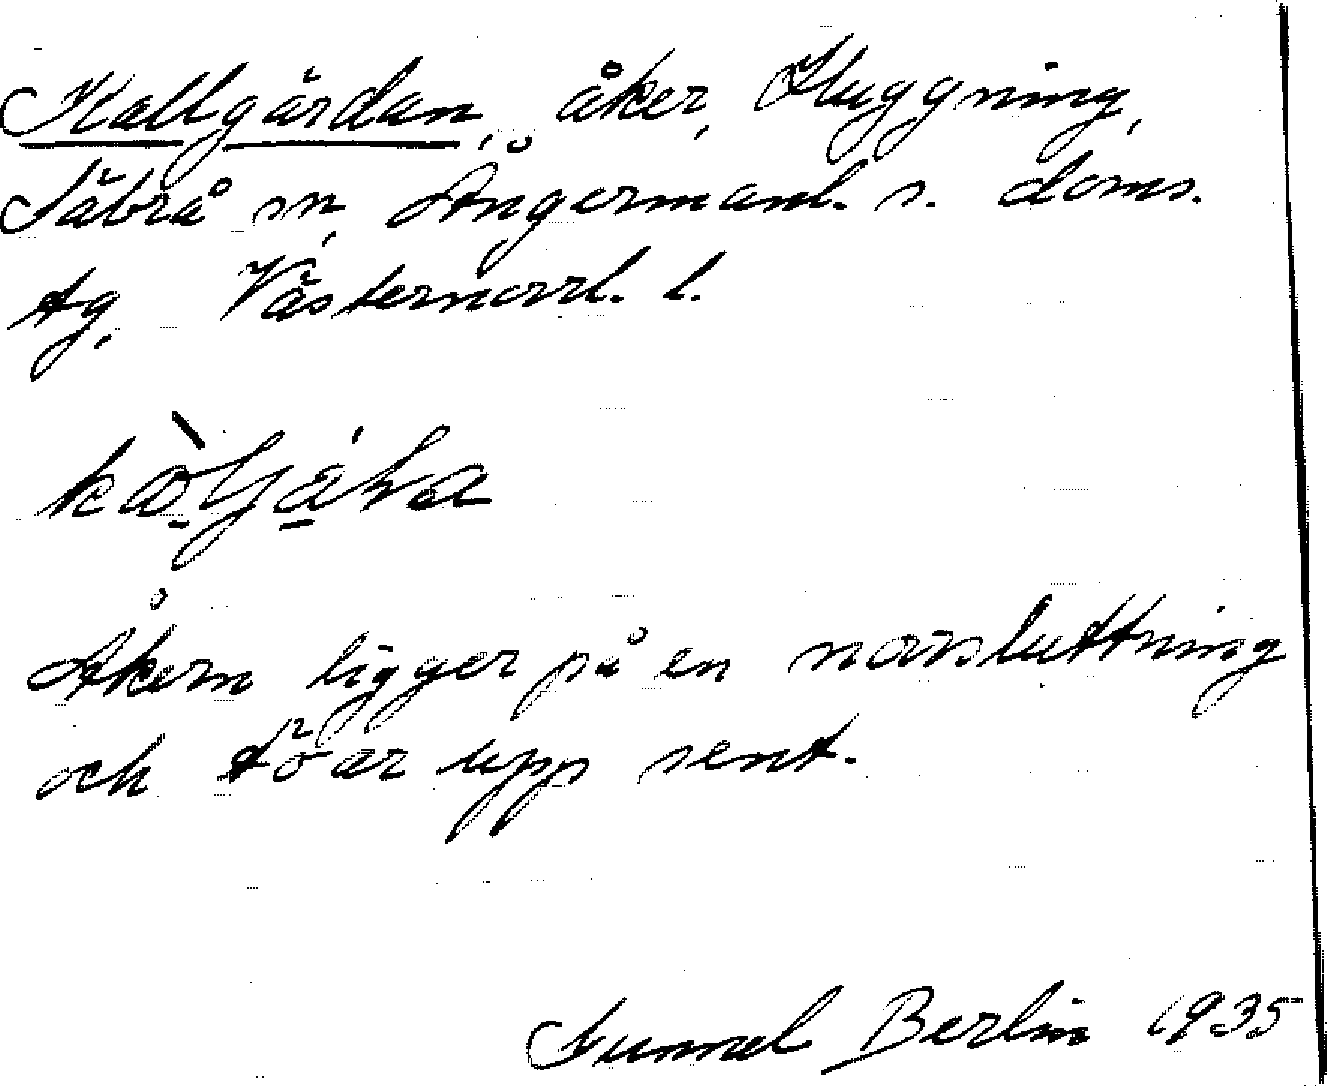 Kallgårdan, åker, Huggning,
Säbrå sn, Ångermanl. s. doms.
tg, Västernorrl. l.
Åkern ligger på en norrsluttning
och töar upp sent.
Gunnel Berlin 1935